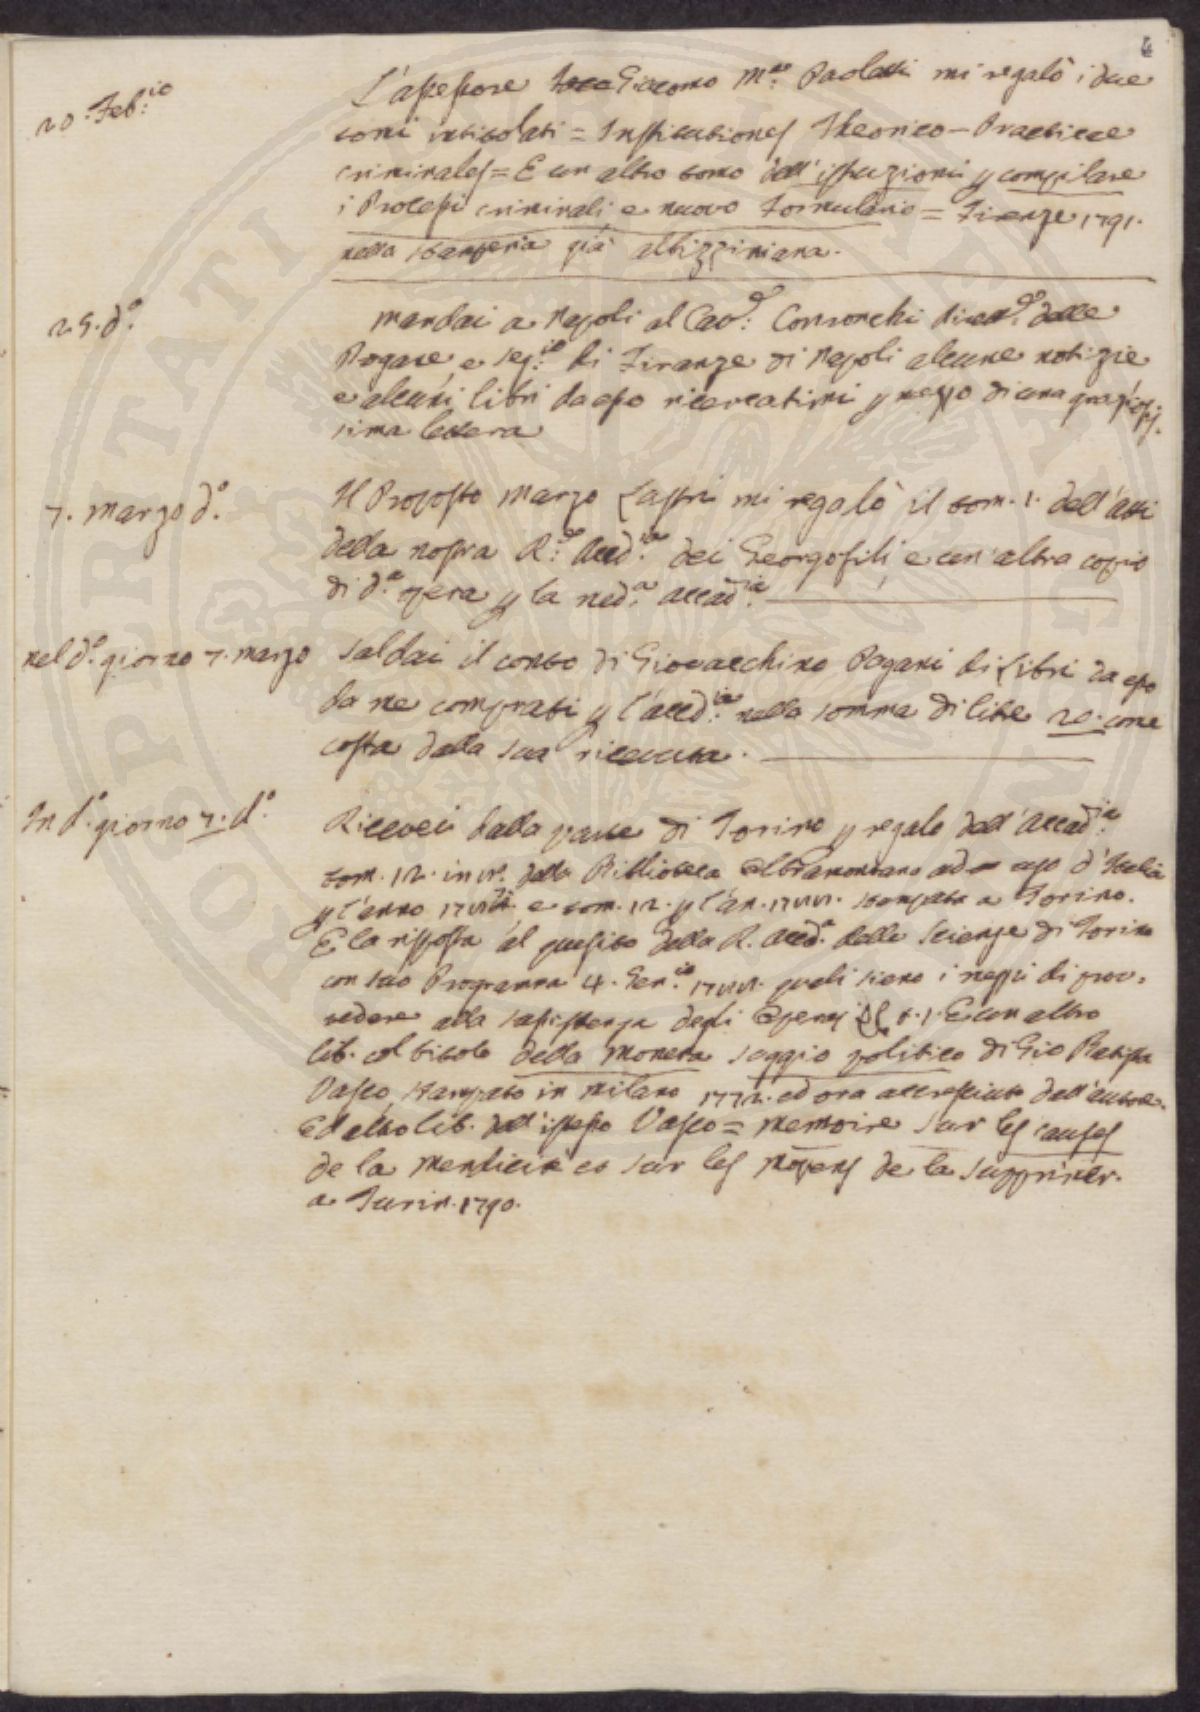 4
20. Feb:io L'assessore Giacomo M:a Paoletti mi regalò i due
tomi intitolati = Institutiones Theorico-Practicae
criminales = E un altro tomo dell'istruzioni p compilare
i Processi criminali e nuovo Formulario = Firenze 1791.
nella stamperia già albizziniana.
25. d.o mandai a Napoli al Cav: delle
Dogane e Seg:io di Finanze di Napoli alcune notizie
e alcuni libri da esso ricercatimi p mezzo di una graziosis-
sima lettera
7. marzo d.o Il Proposto Marco Lastri mi regalò il tom. 1. dell'atti
della nostra R:le Accad:ia dei Georgofili, e un'altra copia
di d.a opera p la med.a accad:ia
nel d.o giorno 7. marzo saldai il conto di Giovacchino Pagani di Libri da esso
da me comprati p l'accad:ia nella somma di lire 20. come
costa dalla sua ricevuta.
In d.o giorno 7. d.o Ricevei dalla parte di Torino p regalo dell'accad:ia
tom. 12. in 12. della Biblioteca oltramontana ad uso d'Italia
p l'anno e tom. 12. p l'an. stampata a Torino.
E la risposta al quesito della R. accad.a delle Scienze di Torino
con suo Programma 4. Gen:io quali sieno i mezzi di prov-
vedere alla sussistenza degli operaj t. 1. E un altro
lib. col titolo della moneta saggio politico di Gio Batista
Vasco, stampato in Milano 1772. ed ora accresciuto dall'autore.
Ed altro lib. dell'istesso Vasco = memoire sur les causes
de la mendicité et sur les moyens de la supprimer.
a Turin. 1790.